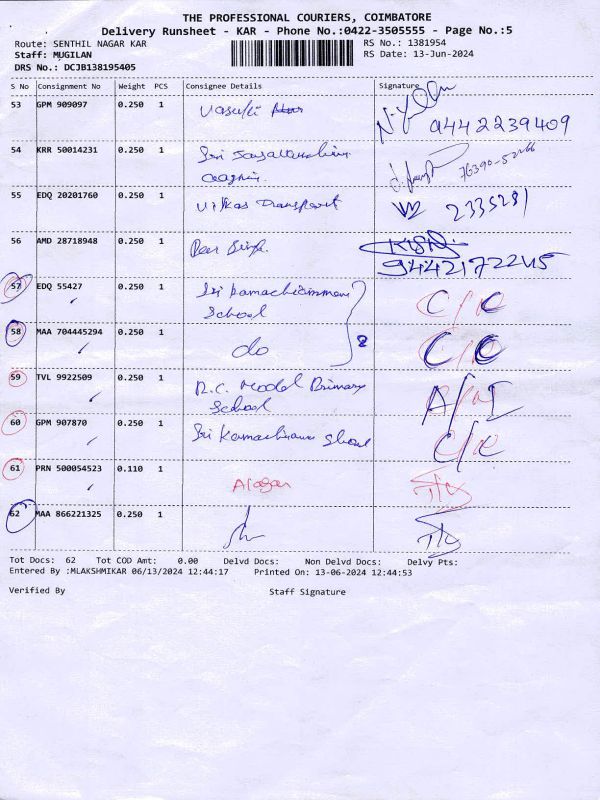 THE PROFESSIONAL COURIERS, COIMBATORE
Delivery Runsheet - KAR - Phone No.:0422-3505555 - Page No.:5
Route: SENTHIL NAGAR KAR RS No.: 1381954
Staff: MUGILAN RS Date: 13-Jun-2024
DRS No.: DCJB138195405
S No Consignment No Weight PCS Consignee Details Signature
53 GPM 909097 0.250 1 Vasuki
9442239409
54 KRR 50014231 0.250 1 Sri
55 EDQ 20201760 0.250 1 Vikas Transport 2335281
56 AMD 28718948 0.250 1 Singh
9442172245
57 EDQ 55427 0.250 1 Sri Kamachiamman C/C
School
58 MAA 704445294 0.250 1 do 2 C/C
59 TVL 9922509 0.250 1 R.C. Model Primary
School
60 GPM 907870 0.250 1 Sri C/C
61 PRN 500054523 0.110 1 Alagar
62 MAA 866221325 0.250 1
Tot Docs: 62 Tot COD Amt: 0.00 Delvd Docs: Non Delvd Docs: Delvy Pts:
Entered By :MLAKSHMIKAR 06/13/2024 12:44:17 Printed On: 13-06-2024 12:44:53
Verified By Staff Signature